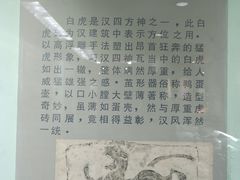 白虎是汉四方神之一，此白
虎为汉建筑中表示方位之用。
以高浮雕手法塑出昂首狂奔的猛
虎形象，与汉四神瓦当白虎
如出一辙，整体飒然厚重，给人
威猛雄强之感。茧形器俗称鸭蛋
壶，以口小膛大壁薄著称，造型
奇妙，虽薄如蛋壳，然与厚重虎
砖同展，竟相得益彰，汉风浑然
一统。